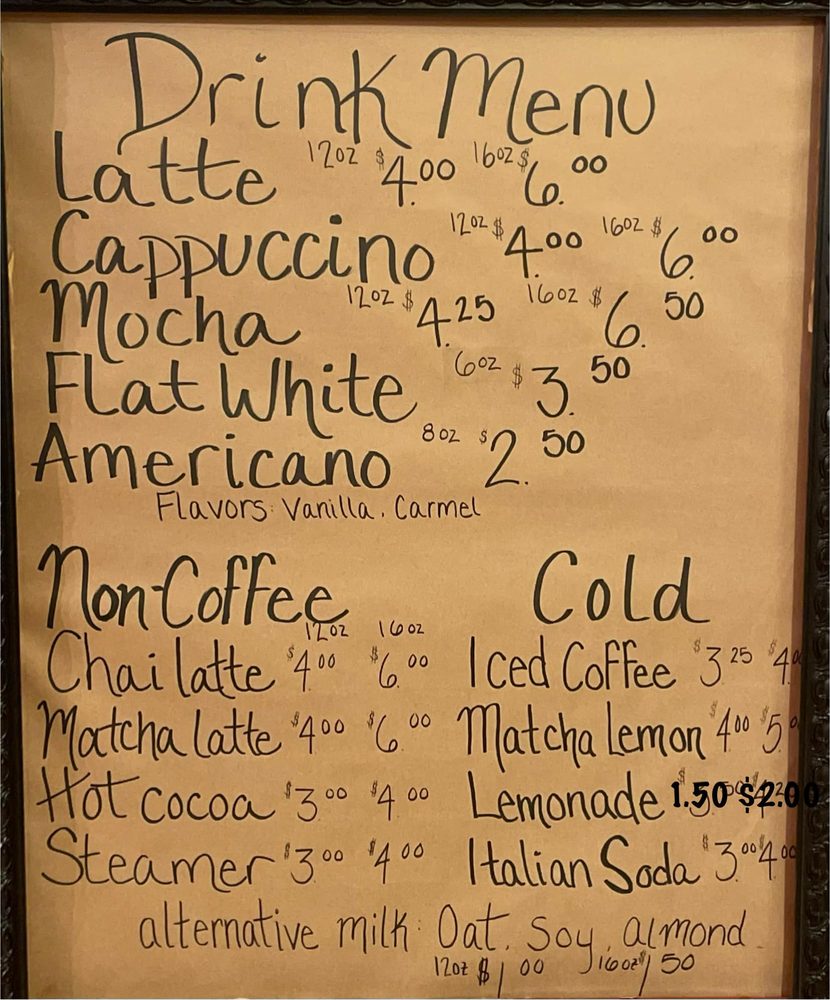 Drink Menu
Latte 12oz $4.00 16oz $6.00
Cappuccino 12oz $4.00 16oz $6.00
Mocha 12oz $4.25 16oz $6.50
Flat White 6oz $3.50
Americano 8oz $2.50
Flavors: Vanilla, Carmel
Non-Coffee
12oz 16oz
Chai latte $4.00 $6.00
Matcha latte $4.00 $6.00
Hot cocoa $3.00 $4.00
Steamer $3.00 $4.00
Cold
Iced Coffee $3.25 $4.00
Matcha Lemon $4.00 $5.00
Lemonade 1.50 $2.00
Italian Soda $3.00 $4.00
alternative milk: Oat, Soy, almond
12oz $1.00 16oz $1.50